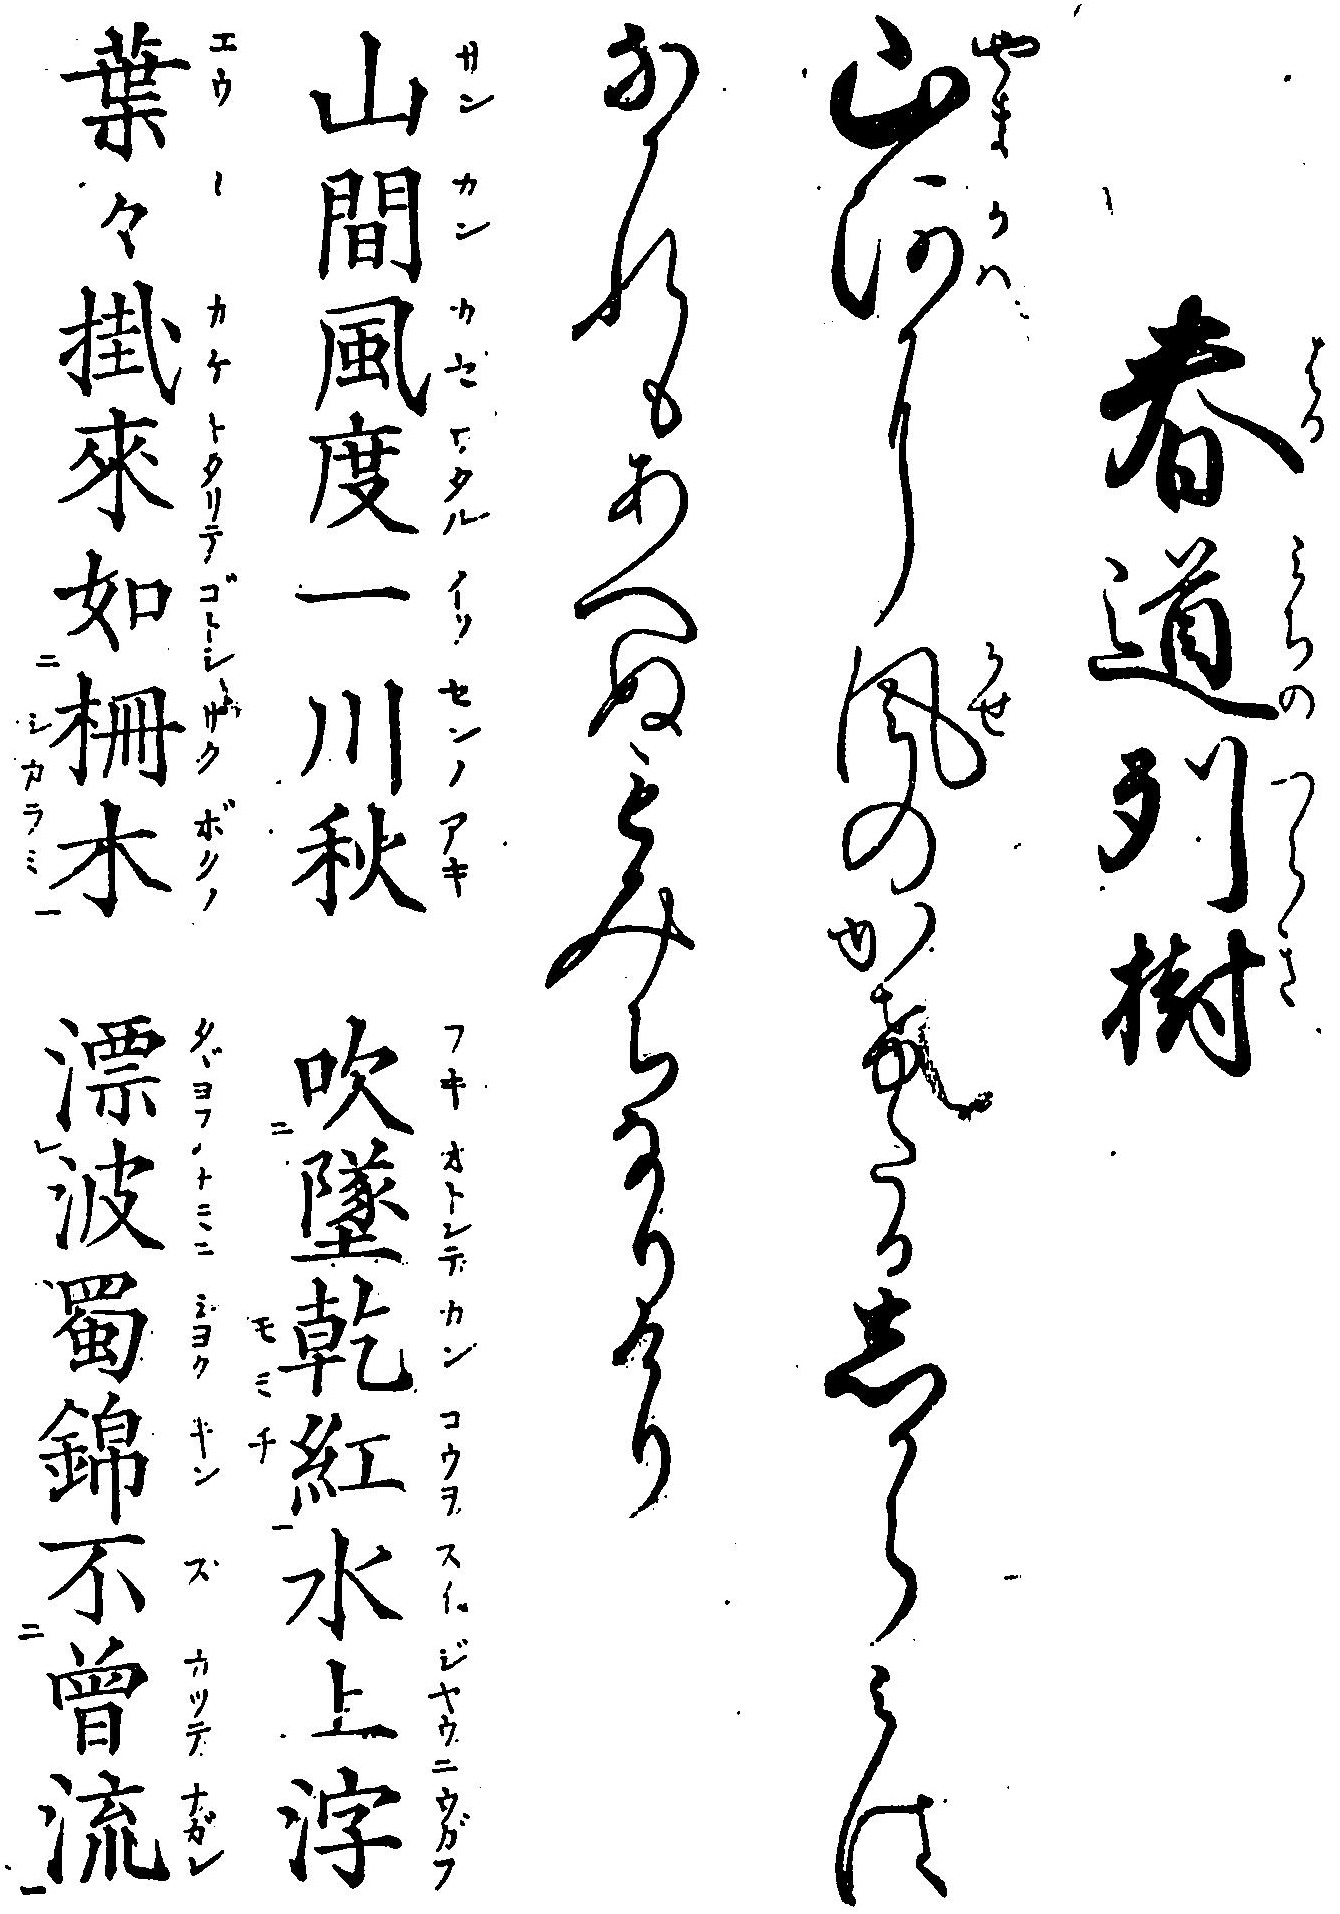 春道列樹
山河に風のかけたるしからみは
なかれもあへぬもみちなりけり
山間風度一川秋 吹墜乾紅水上浮
葉々掛來如柵木 漂波蜀錦不曾流